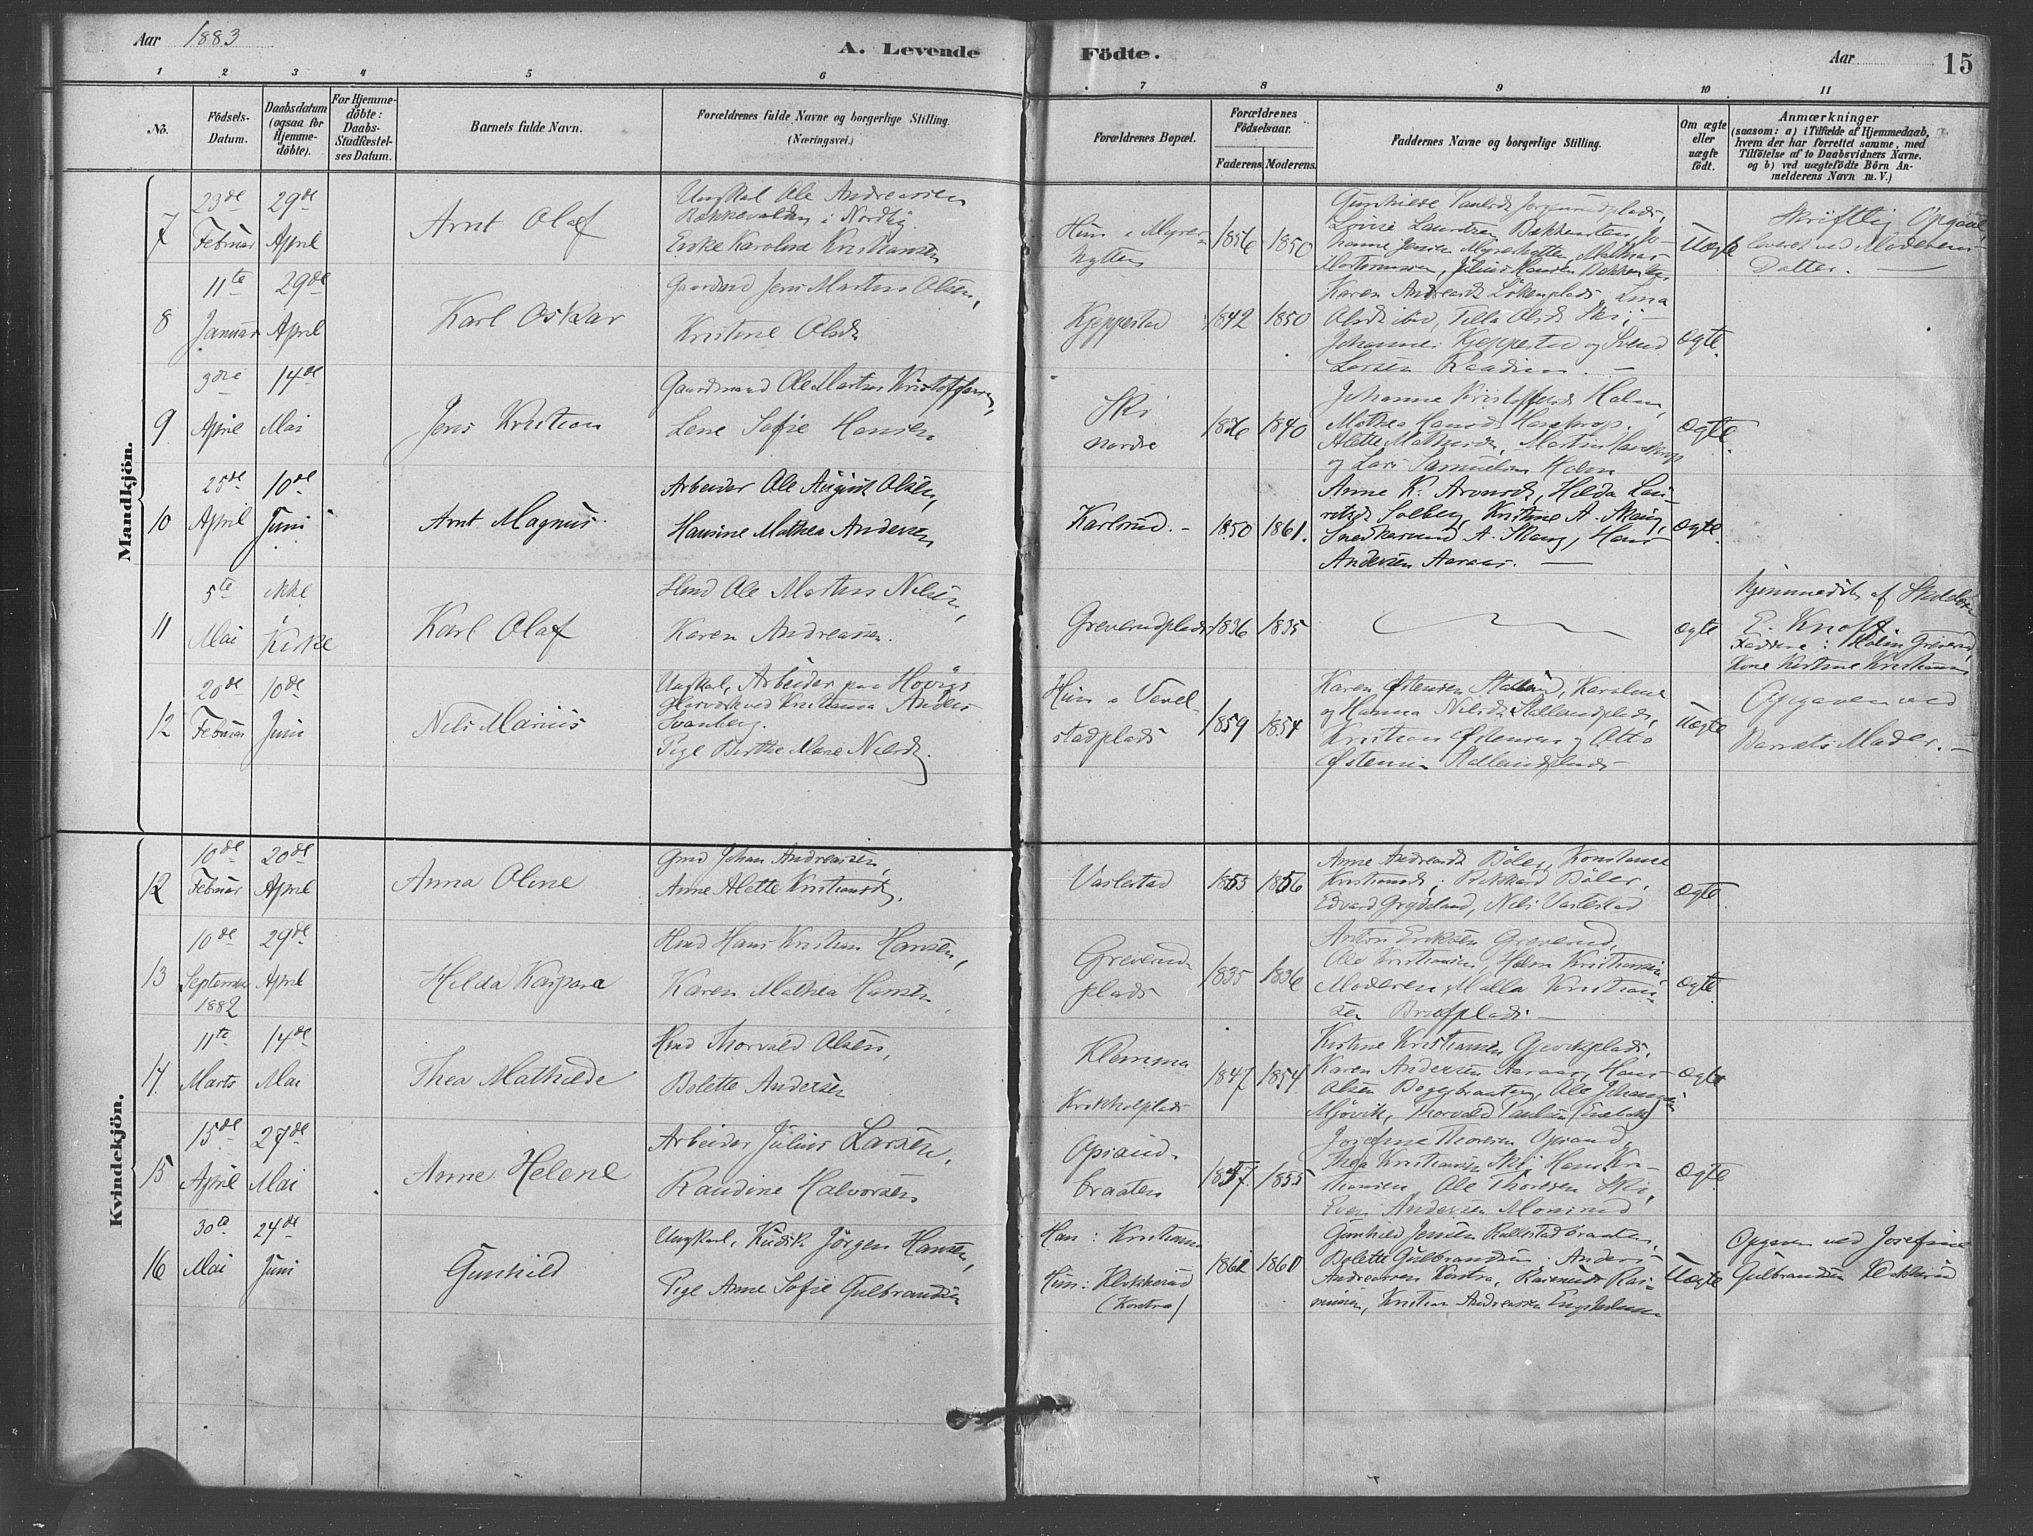 Aar 1883
A. Levende
Födte.
Aar
15
1 2 3 4 5 6 7 8 9 10 11
No.
Födsels-
Datum.
Daabsdatum
(ogsaa for
Hjemme-
döbte).
For Hjemme-
döbte:
Daabs-
Stadfæstel-
ses Datum.
Barnets fulde Navn.
Forældrenes fulde Navne og borgerlige Stilling.
(Næringsvei.)
Forældrenes Bopæl.
Forældrenes
Födselsaar.
Faderens. Moderens.
Faddernes Navne og borgerlige Stilling.
Om ægte
eller
uægte
født.
Anmærkninger
(saasom: a) i Tilfælde af Hjemmedaab,
hvem der har forrettet samme, med
Tilföielse af to Daabsvidners Navne.
og b) ved uægtefödte Börn An-
melderens Navn m. V.)
Mandkjön.
7
23de
Februar
29de
April
Arnt Olaf
Ungkal Ole Andreassen
i Nordby
Enke Karoline Kristiansen
Hun i Myrer-
hytten
1856 1850
Johanne Jensen Myrerhytten,
Uægte
Skriftlig Opgave
leveret ved Moderens
Datter. —
8
11te
Januar
29de
April
Karl Oskar
Gaardmd Jens Martin Olsen,
Kristine Olsdr
Kjeppestad
1842 1850
Karen Andreasdr Lökenplads,
Olsdr ibid, Olsdr Ski,
Johannes Kjeppestad og Svend
Larsen
Ægte.
9
3die
April
14de
Mai
Jens Kristian
Gaardmand Ole Martin Kristoffersen,
Lene Sofie Hansen
Ski
nordre
1836 1840
Johanne Kristoffersdr Holm,
Mathea Hansdr
og Lars Samuelsen Holm
Ægte.
10
25de
April
10de
Juni
Arnt Magnus.
Arbeider Ole August Olsen,
Hansine Mathea Andersen
Karlsrud. -
1850 1861.
Anne K. Hilda Lau-
ritsdr Solberg, Kristine A. Skaug,
A. Skaug, Hans
Andersen Aaraas. —
Ægte.
11
5te
Mai
ikke
i
Kirke
Karl Olaf
Hmd Ole Martin Nilsen,
Karen Andreassen.
Greverudplads
1836 1835
ægte
hjemmedöbt af
E. Knoff
Faddere: Holm Greverud,
Kone Kristine Kristiansen
12
20de
Februar
10de
Juni
Nils Marius
Ungkal, Arbeider paa Hövigs
Glasværk ved Kristiania Anders
Svanberg.
Pige Berthe Marie Nilsdr.
Hun i Vevel-
stadplads
1859 1854
Karen Østensen Karoline
og Hanna Nilsdr
Kristian Østensen og Otto
Østensen
Uægte
Opgaven ved
Barnets Moder. —
Kvindekjön.
12
10de
Februar
20de
April
Anna Oline
Gmd Johan Andreassen,
Anne Alette Kristiansdr.
Vaslestad
1855 1856
Anne Andreasdr Böler, Konstance
Kristiansdr, Rikhard Böler,
Edvard Nils Vaslestad
Ægte.
13
10de
September
1882
29de
April
Hilda Kaspara
Hmd Hans Kristian Hansen,
Karen Mathea Hansdr.
Greverud-
plads
1835 1836
Anton Eriksen Greverud,
Ole Kristiansen, Holm Kristiansen,
Moderen, Malla Kristian-
sen
Ægte.
14
11te
Marts
14de
Mai
Thea Mathilde
Hmd Thorvald Olsen,
Bolette Andersen
Klemma
Krokholplads
1847 1854
Kirstine Kristiansen
Karen Andersen Aaraas, Hans
Olsen Ole Johannesen
Mjövik, Thorvald Paulsen
Ægte
15
15de
April
27de
Mai
Anne Helene
Arbeider Julius Larsen,
Randine Halvorsen
Opsand-
braaten
1857. 1855
Josefine Thoresen Opsand,
Thea Kristiansen Ski, Hans Kri-
stiansen, Ole Thoresen Ski,
Even Andersen
Ægte
16
30te
Mai
24de
Juni
Gunhild
Ungkarl, Kudsk Jörgen Hansen,
Pige Anne Sofie Gulbrandsen
Han: Kristiania
Hun: Klokkerud
(Kontra)
1861 1860
Gunhild Jensen
Bolette Gulbrandsen, Anders
Andreassen Kontra, Rasmus Ras-
mussen, Kristian Andreassen
Uægte
Opgave ved Josefine
Gulbrandsen Klokkerud